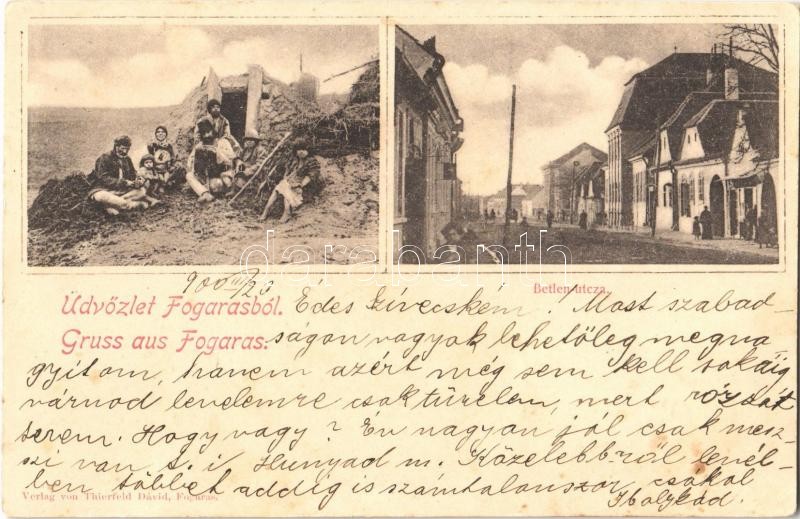 Betlen-utcza.
900 III/23
Üdvözlet Fogarasból. Édes Szívecském! Most szabad-
Gruss aus Fogaras. ságon vagyok lehetőleg megna
gyitom, hanem azért még sem kell sokáig
várnod levelemre csak türelem, mert rózsát
terem. Hogy vagy? Én nagyon jól csak mesz-
szi van t. i. Hunyad m. Közelebbről levél-
ben többet addig is számtalanszor csókol
Ibolykád.
Verlag von Thierfeld Dávid, Fogaras.
darabanth